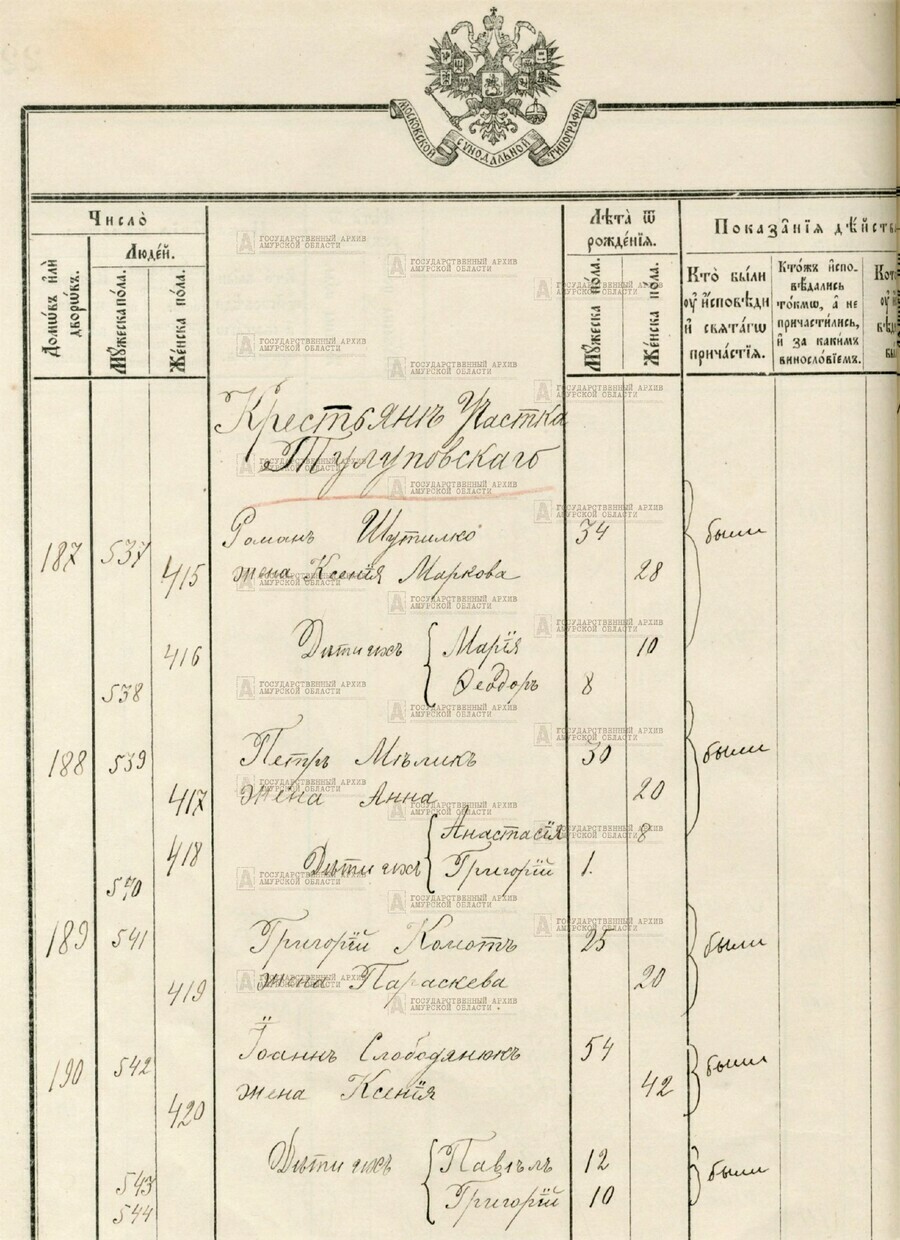 МОСКОВСКОЙ СѴНОДАЛЬНОЙ ТИПОГРАФІИ
Число̀
Домѡ́въ и҆лѝ дворѡ́въ.
Люде́й.
Мꙋ́жеска по́ла.
Же́нска по́ла.
Лѣ́та ѿ рожде́нїѧ.
Мꙋ́жеска по́ла.
Же́нска по́ла.
Показа́нїѧ дѣ́йств
Кто̀ бы́ли
оу҆ и҆сповѣ́ди
и҆ свѧта́гѡ
прича́стїѧ.
Кто́жъ и҆спо-
вѣ́дались
то́кмѡ, а҆ не
причасти́лись,
и҆ за каки́мъ
винословїемъ.
Крестьянъ Участка
Тулуповскаго
187 537 Романъ Шутилко 34 были
415 жена Ксенія Маркова 28
416 Дѣти ихъ Марія 10
538 Ѳеодоръ 8
188 539 Петръ Мѣликъ 30 были
417 жена Анна 20
418 Анастасія 8
540 Дѣти ихъ Григорій 1.
189 541 Григорій Комотъ 25 были
419 жена Параскева 20
190 542 Іоаннъ Слободянюкъ 54 были
420 жена Ксенія 42
543 Дѣти ихъ Павелъ 12 были
544 Григорій 10
ГОСУДАРСТВЕННЫЙ АРХИВ
АМУРСКОЙ ОБЛАСТИ